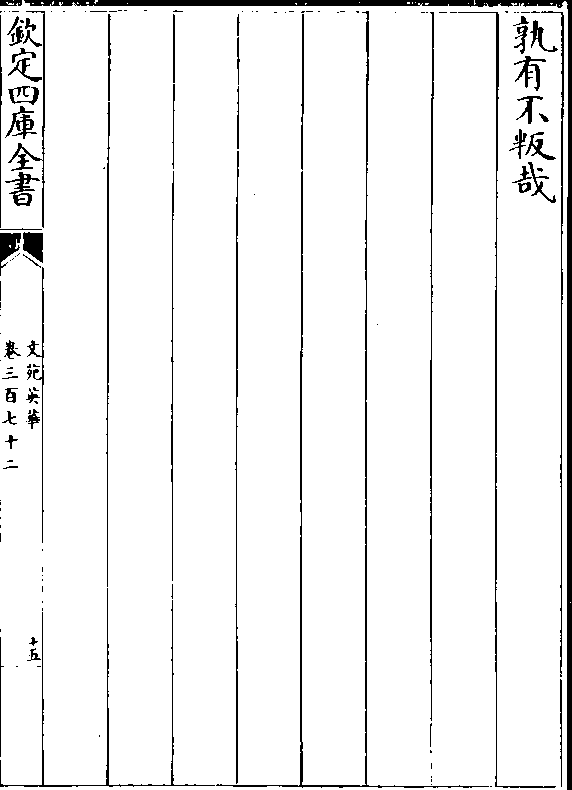 孰有不叛哉
欽定四庫全書
文苑英華
卷三百七十二
十五